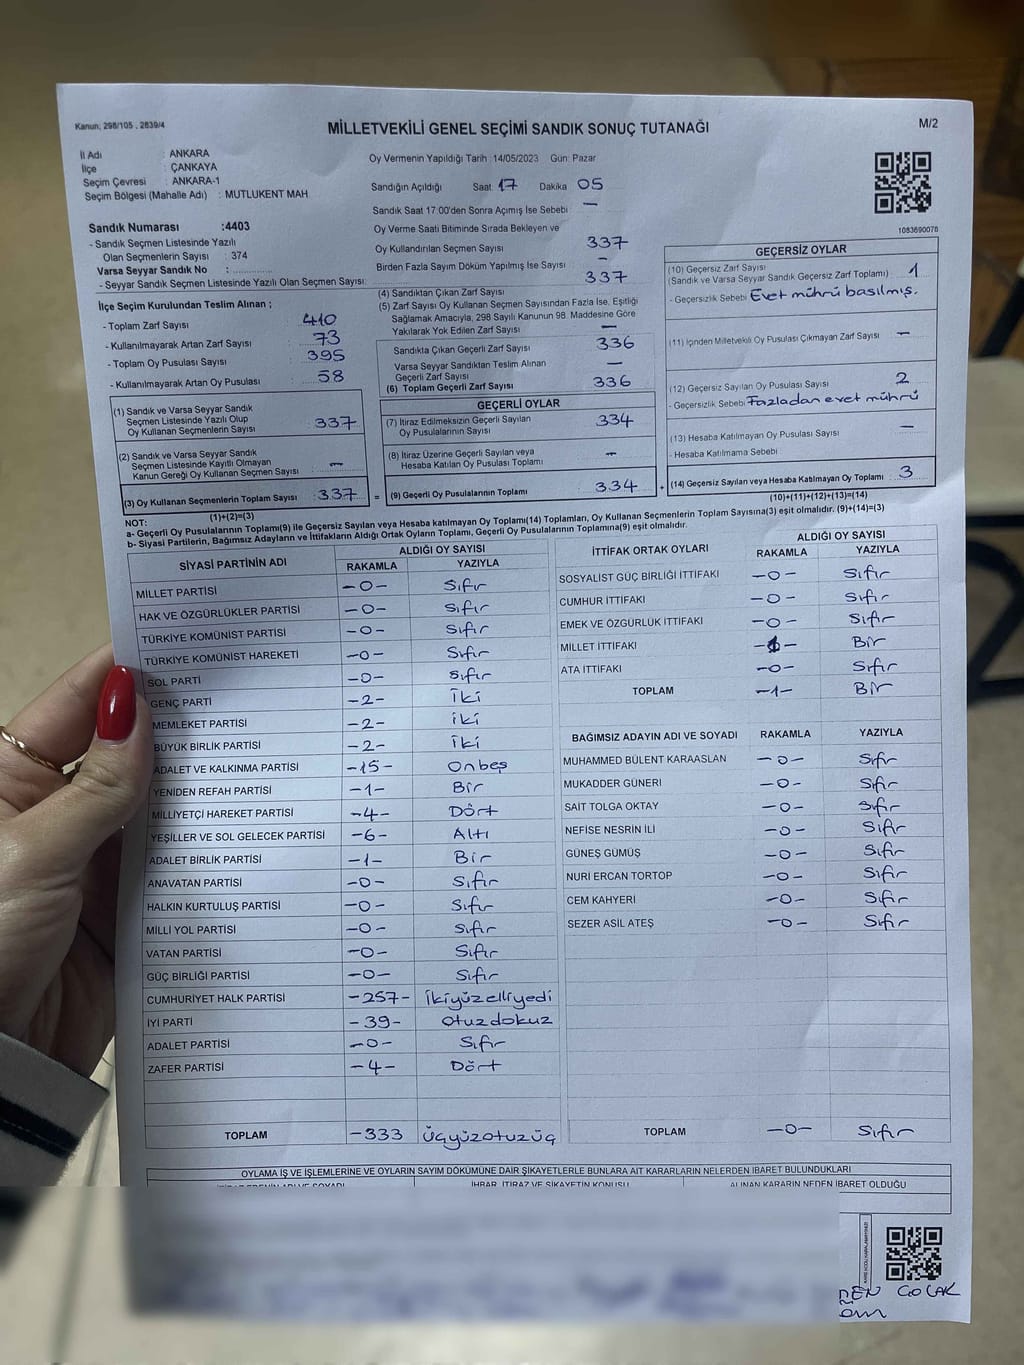 Kanun; 298/105 , 2839/4
MİLLETVEKİLİ GENEL SEÇİMİ SANDIK SONUÇ TUTANAĞI
M/2
İl Adı : ANKARA
İlçe : ÇANKAYA
Seçim Çevresi : ANKARA-1
Seçim Bölgesi (Mahalle Adı) : MUTLUKENT MAH
Oy Vermenin Yapıldığı Tarih :14/05/2023 Gün: Pazar
Sandığın Açıldığı Saat 17 Dakika 05
Sandık Saat 17:00'den Sonra Açmış İse Sebebi —
Oy Verme Saati Bitiminde Sırada Bekleyen ve
Oy Kullandırılan Seçmen Sayısı 337
Birden Fazla Sayım Döküm Yapılmış İse Sayısı –
1083690078
Sandık Numarası :4403
- Sandık Seçmen Listesinde Yazılı
Olan Seçmenlerin Sayısı : 374
Varsa Seyyar Sandık No : ..............
- Seyyar Sandık Seçmen Listesinde Yazılı Olan Seçmen Sayısı:
İlçe Seçim Kurulundan Teslim Alınan ;
- Toplam Zarf Sayısı 410
- Kullanılmayarak Artan Zarf Sayısı 73
- Toplam Oy Pusulası Sayısı 395
- Kullanılmayarak Artan Oy Pusulası 58
(1) Sandık ve Varsa Seyyar Sandık
Seçmen Listesinde Yazılı Olup
Oy Kullanan Seçmenlerin Sayısı : 337
(2) Sandık ve Varsa Seyyar Sandık
Seçmen Listesinde Kayıtlı Olmayan
Kanun Gereği Oy Kullanan Seçmen Sayısı : —
(3) Oy Kullanan Seçmenlerin Toplam Sayısı : 337
(1)+(2)=(3)
(4) Sandıktan Çıkan Zarf Sayısı 337
(5) Zarf Sayısı Oy Kullanan Seçmen Sayısından Fazla İse, Eşitliği
Sağlamak Amacıyla, 298 Sayılı Kanunun 98. Maddesine Göre
Yakılarak Yok Edilen Zarf Sayısı —
Sandıkta Çıkan Geçerli Zarf Sayısı 336
Varsa Seyyar Sandıktan Teslim Alınan
Geçerli Zarf Sayısı —
(6) Toplam Geçerli Zarf Sayısı 336
GEÇERLİ OYLAR
(7) İtiraz Edilmeksizin Geçerli Sayılan
Oy Pusulalarının Sayısı 334
(8) İtiraz Üzerine Geçerli Sayılan veya
Hesaba Katılan Oy Pusulası Toplamı —
= (9) Geçerli Oy Pusulalarının Toplamı 334 +
GEÇERSİZ OYLAR
(10) Geçersiz Zarf Sayısı
(Sandık ve Varsa Seyyar Sandık Geçersiz Zarf Toplamı) : 1
- Geçersizlik Sebebi Evet mührü basılmış.
(11) İçinden Milletvekili Oy Pusulası Çıkmayan Zarf Sayısı —
(12) Geçersiz Sayılan Oy Pusulası Sayısı 2
- Geçersizlik Sebebi Fazladan evet mührü
(13) Hesaba Katılmayan Oy Pusulası Sayısı —
- Hesaba Katılmama Sebebi
(14) Geçersiz Sayılan veya Hesaba Katılmayan Oy Toplamı 3
(10)+(11)+(12)+(13)=(14)
NOT:
a- Geçerli Oy Pusulalarının Toplamı(9) ile Geçersiz Sayılan veya Hesaba katılmayan Oy Toplamı(14) Toplamları, Oy Kullanan Seçmenlerin Toplam Sayısına(3) eşit olmalıdır. (9)+(14)=(3)
b- Siyasi Partilerin, Bağımsız Adayların ve İttifakların Aldığı Ortak Oyların Toplamı, Geçerli Oy Pusulalarının Toplamına(9) eşit olmalıdır.
SİYASİ PARTİNİN ADI ALDIĞI OY SAYISI
RAKAMLA YAZIYLA
MİLLET PARTİSİ -0- Sıfır
HAK VE ÖZGÜRLÜKLER PARTİSİ -0- Sıfır
TÜRKİYE KOMÜNİST PARTİSİ -0- Sıfır
TÜRKİYE KOMÜNİST HAREKETİ -0- Sıfır
SOL PARTİ -0- Sıfır
GENÇ PARTİ -2- İki
MEMLEKET PARTİSİ -2- İki
BÜYÜK BİRLİK PARTİSİ -2- İki
ADALET VE KALKINMA PARTİSİ -15- Onbeş
YENİDEN REFAH PARTİSİ -1- Bir
MİLLİYETÇİ HAREKET PARTİSİ -4- Dört
YEŞİLLER VE SOL GELECEK PARTİSİ -6- Altı
ADALET BİRLİK PARTİSİ -1- Bir
ANAVATAN PARTİSİ -0- Sıfır
HALKIN KURTULUŞ PARTİSİ -0- Sıfır
MİLLİ YOL PARTİSİ -0- Sıfır
VATAN PARTİSİ -0- Sıfır
GÜÇ BİRLİĞİ PARTİSİ -0- Sıfır
CUMHURİYET HALK PARTİSİ -257- İkiyüzelliyedi
İYİ PARTİ -39- Otuzdokuz
ADALET PARTİSİ -0- Sıfır
ZAFER PARTİSİ -4- Dört
TOPLAM -333 Üçyüzotuzüç
İTTİFAK ORTAK OYLARI ALDIĞI OY SAYISI
RAKAMLA YAZIYLA
SOSYALİST GÜÇ BİRLİĞİ İTTİFAKI -0- Sıfır
CUMHUR İTTİFAKI -0- Sıfır
EMEK VE ÖZGÜRLÜK İTTİFAKI -0- Sıfır
MİLLET İTTİFAKI -1- Bir
ATA İTTİFAKI -0- Sıfır
TOPLAM -1- Bir
BAĞIMSIZ ADAYIN ADI VE SOYADI RAKAMLA YAZIYLA
MUHAMMED BÜLENT KARAASLAN -0- Sıfır
MUKADDER GÜNERİ -0- Sıfır
SAİT TOLGA OKTAY -0- Sıfır
NEFİSE NESRİN İLİ -0- Sıfır
GÜNEŞ GÜMÜŞ -0- Sıfır
NURİ ERCAN TORTOP -0- Sıfır
CEM KAHYERİ -0- Sıfır
SEZER ASİL ATEŞ -0- Sıfır
TOPLAM -0- Sıfır
OYLAMA İŞ VE İŞLEMLERİNE VE OYLARIN SAYIM DÖKÜMÜNE DAİR ŞİKAYETLERLE BUNLARA AİT KARARLARIN NELERDEN İBARET BULUNDUKLARI
İHBAR, İTİRAZ VE ŞİKAYETİN KONUSU ALINAN KARARIN NEDEN İBARET OLDUĞU
ÇOLAK